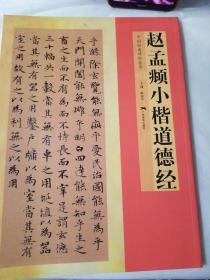 赵孟頫小楷道德经
乎滌除玄覽能無疵乎愛民治國能無為乎
天門開闔能無雌乎明白四達能無知乎生之
畜之生而不有為而不恃長而不宰是謂玄德
三十輻共一轂當其無有車之用埏埴以為器
當其無有器之用鑿戶牖以為室當其無有
室之用故有之以為利無之以為用